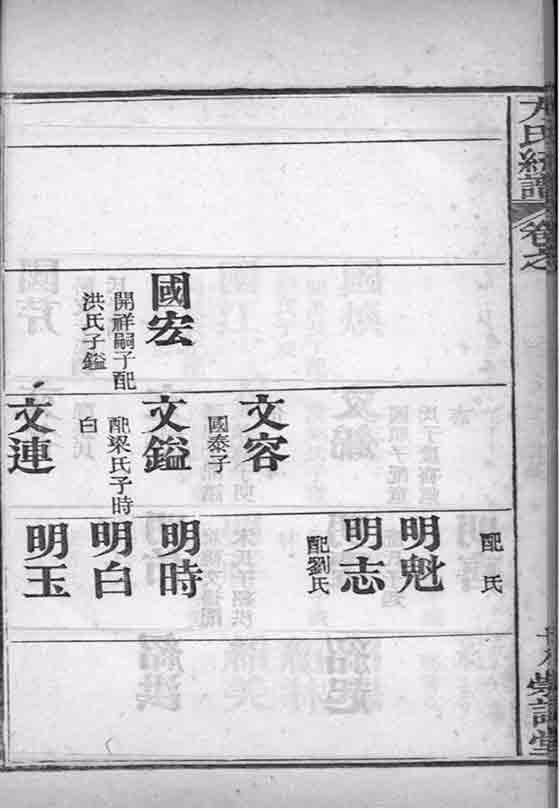 氏續譜
卷之
榮詒堂
國宏
開祥嗣子配
洪氏子鎰
文容
國泰子
文鎰
配梁氏子時
白
文連
配 氏
明魁
明志
配劉氏
明時
明白
明玉